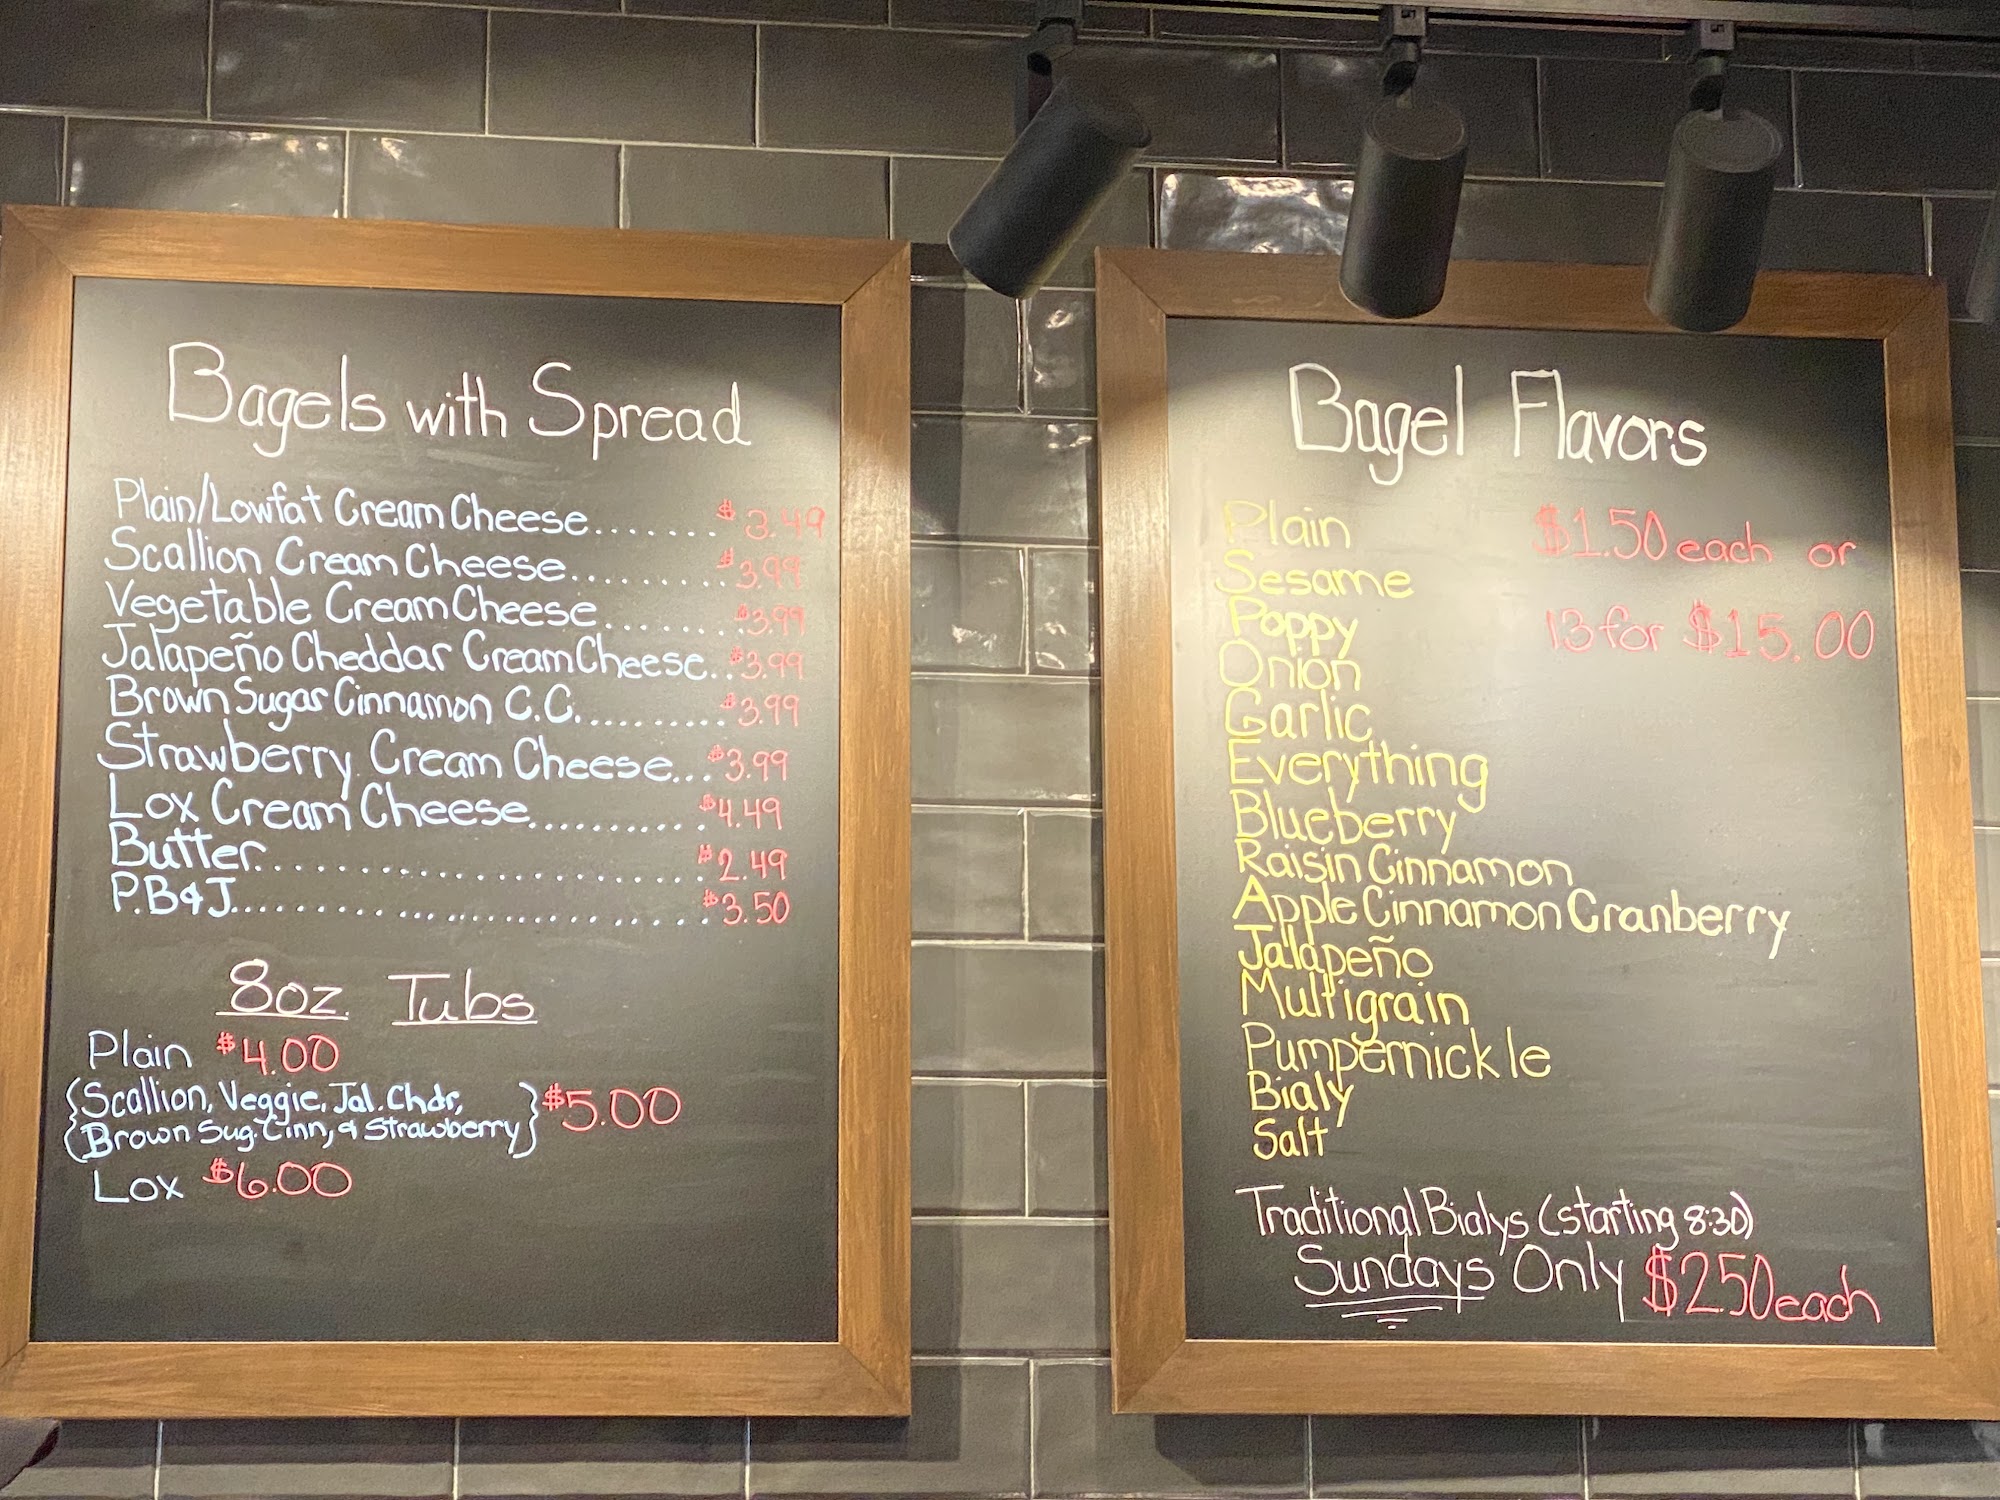 Bagels with Spread
Plain/Lowfat Cream Cheese....... $3.49
Scallion Cream Cheese......... $3.99
Vegetable Cream Cheese........ $3.99
Jalapeño Cheddar Cream Cheese.. $3.99
Brown Sugar Cinnamon C.C.......... $3.99
Strawberry Cream Cheese... $3.99
Lox Cream Cheese........... $4.49
Butter........................ $2.49
P.B&J.......................... $3.50
8oz. Tubs
Plain $4.00
{Scallion, Veggie, Jal. Chdr,
Brown Sug. Cinn, & Strawberry} $5.00
Lox $6.00
Bagel Flavors
Plain $1.50 each or
Sesame
Poppy 13 for $15.00
Onion
Garlic
Everything
Blueberry
Raisin Cinnamon
Apple Cinnamon Cranberry
Jalapeño
Multigrain
Pumpernickle
Bialy
Salt
Traditional Bialys (starting 8:30)
Sundays Only $2.50 each